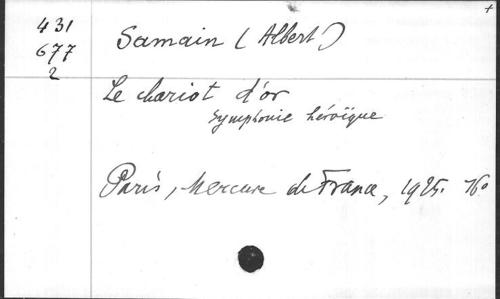 431
677
2
Samain (Albert)
Le chariot d'or
Symphonie héroïque
Paris, Mercure de France, 1925. 16°